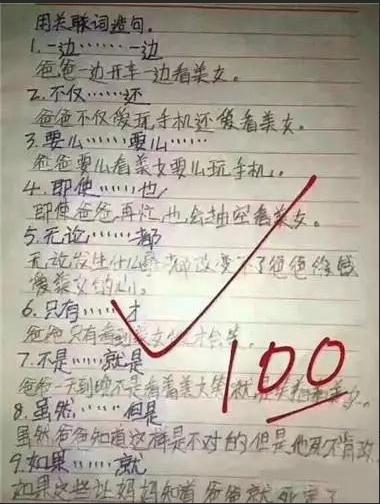 用关联词造句。
1.一边……一边
爸爸一边开车一边看美女。
2.不仅……还
爸爸不仅爱玩手机还爱看美女。
3.要么……要么……
爸爸要么看美女要么玩手机。
4.即使……也
即使爸爸再忙,也会抽空看美女。
5.无论……都
无论发生什么 都改变不了爸爸
爱美女的心。
6.只有……才
爸爸只有看到美女 才会笑。
7.不是……就是
爸爸一天到晚不是看着美女笑就是
8.虽然……但是
虽然爸爸知道这样是不对的但是他死不肯改
9.如果……就
如果这些让妈妈知道 爸爸就死定了
100